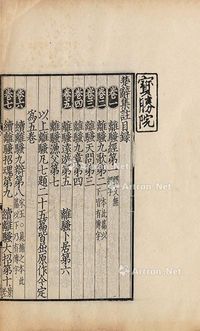 寶勝院
楚辭集註目錄
卷一 離騷經第一
卷二 離騷九歌第二
卷三 離騷天問第三
卷四 離騷九章第四
卷五 離騷遠遊第五 離騷卜居第六
離騷漁父第七
以上離騷凡七題二十五篇皆屈原作今定
為五卷
卷六 續離騷九辯第八
卷七 續離騷招魂第九 續離騷大招第十
Artron.Net